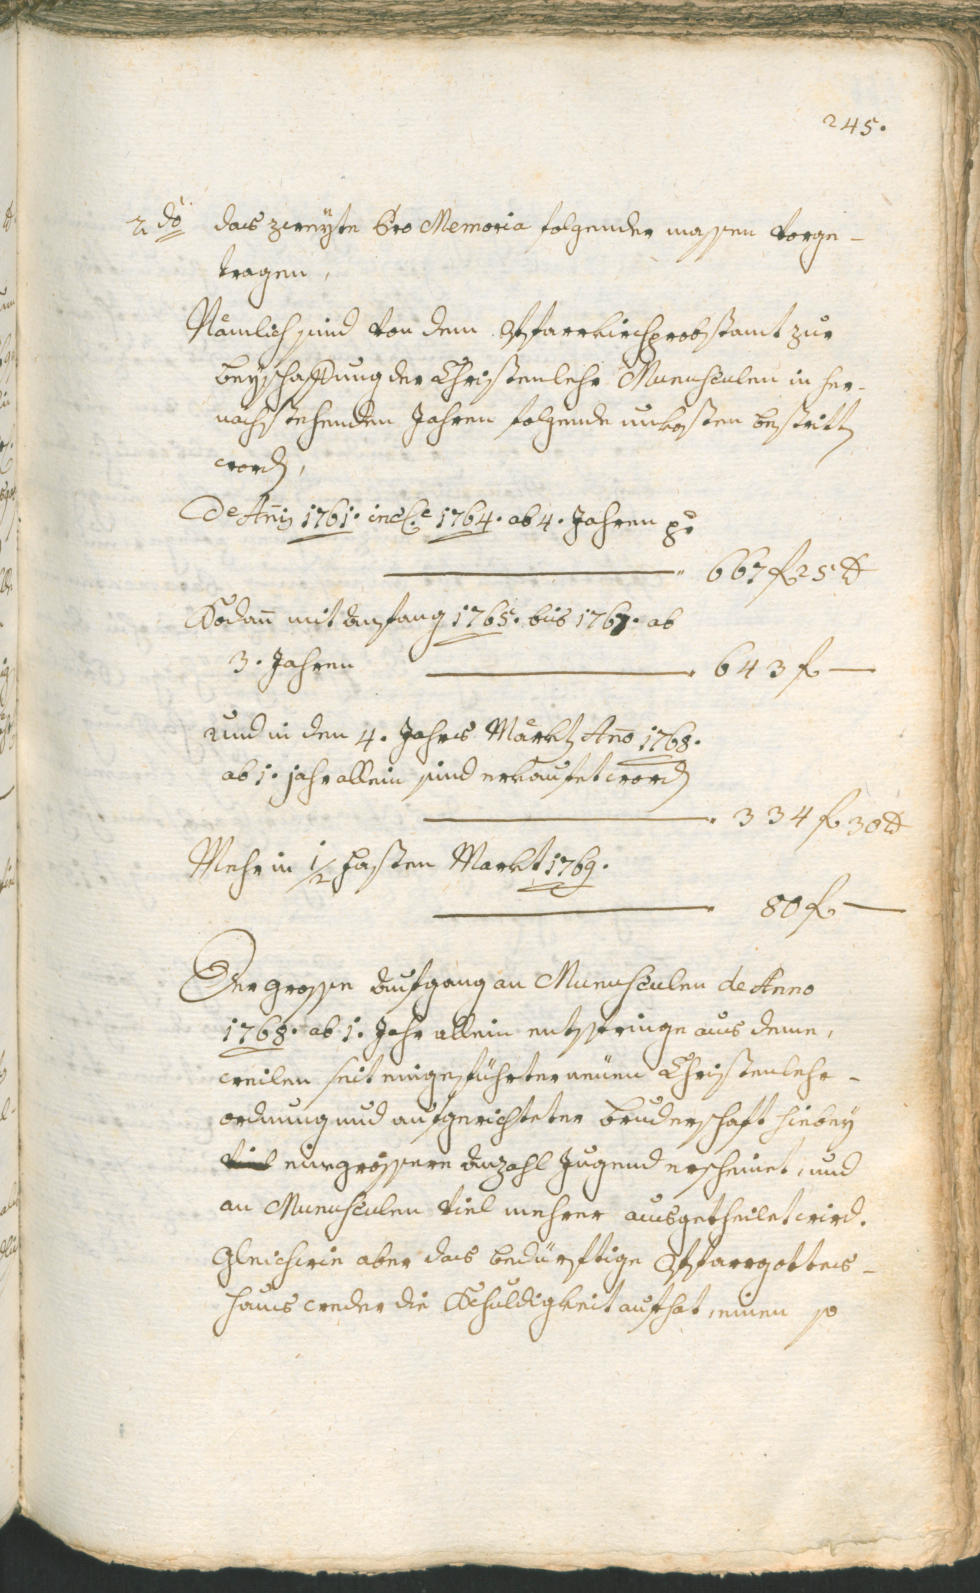 245.
2do das zweyte Pro Memoria folgender massen vorge-
tragen,
Nämlich sind von dem Pfarrkirchprobstamt zur
beyschaffung der Christenlehr Munusculen in her-
nachstehenden Jahren folgende unkosten bestritt
word,
De Ãnis 1761. incl.e 1764. ab 4. Jahren
667 f 25
Sodañ mit anfang 1765. bis 1767. ab
3. Jahren 643 f —
und in den 4. Jahrs Märkt Año 1768.
ab 1. jahr allein sind erkaufet word
334 f 30
Mehr in 1/2 fasten Markt 1769.
80 f —
Der grosse aufgang an Munusculen de Anno
1768. ab 1. Jahr allein entspringe aus deme,
weilen seit eingeführter neüen Christenlehr-
ordnung und aufgerichteter bruderschaft hiebey
viel eine grössere anzahl Jugend erscheinet, und
an Munusculen viel mehrer ausgetheilet wird.
Gleichwie aber das bedürftige Pfarrgottes-
haus weder die Schuldigkeit aufhat, einen so